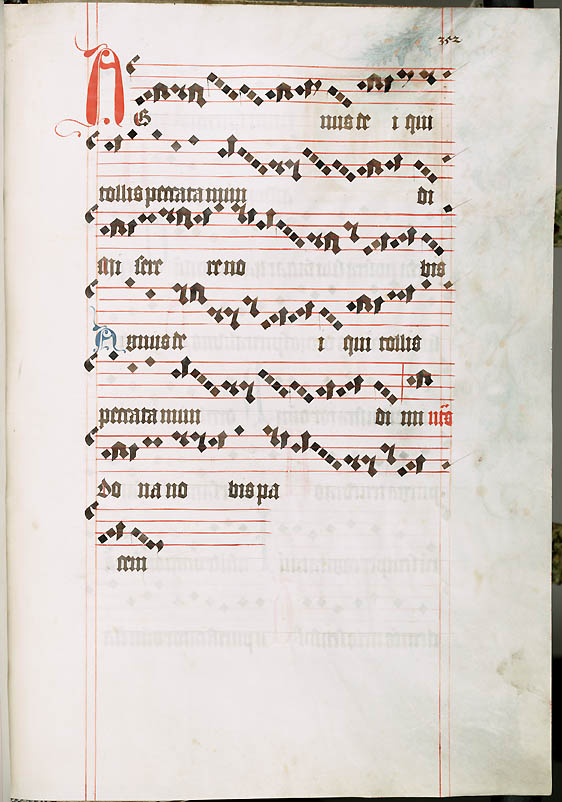 352
AG nus de i qui
tollis peccata mun di
Mi sere re no bis
Agnus de i qui tollis
peccata mun di mi
Do na no bis pa
cem